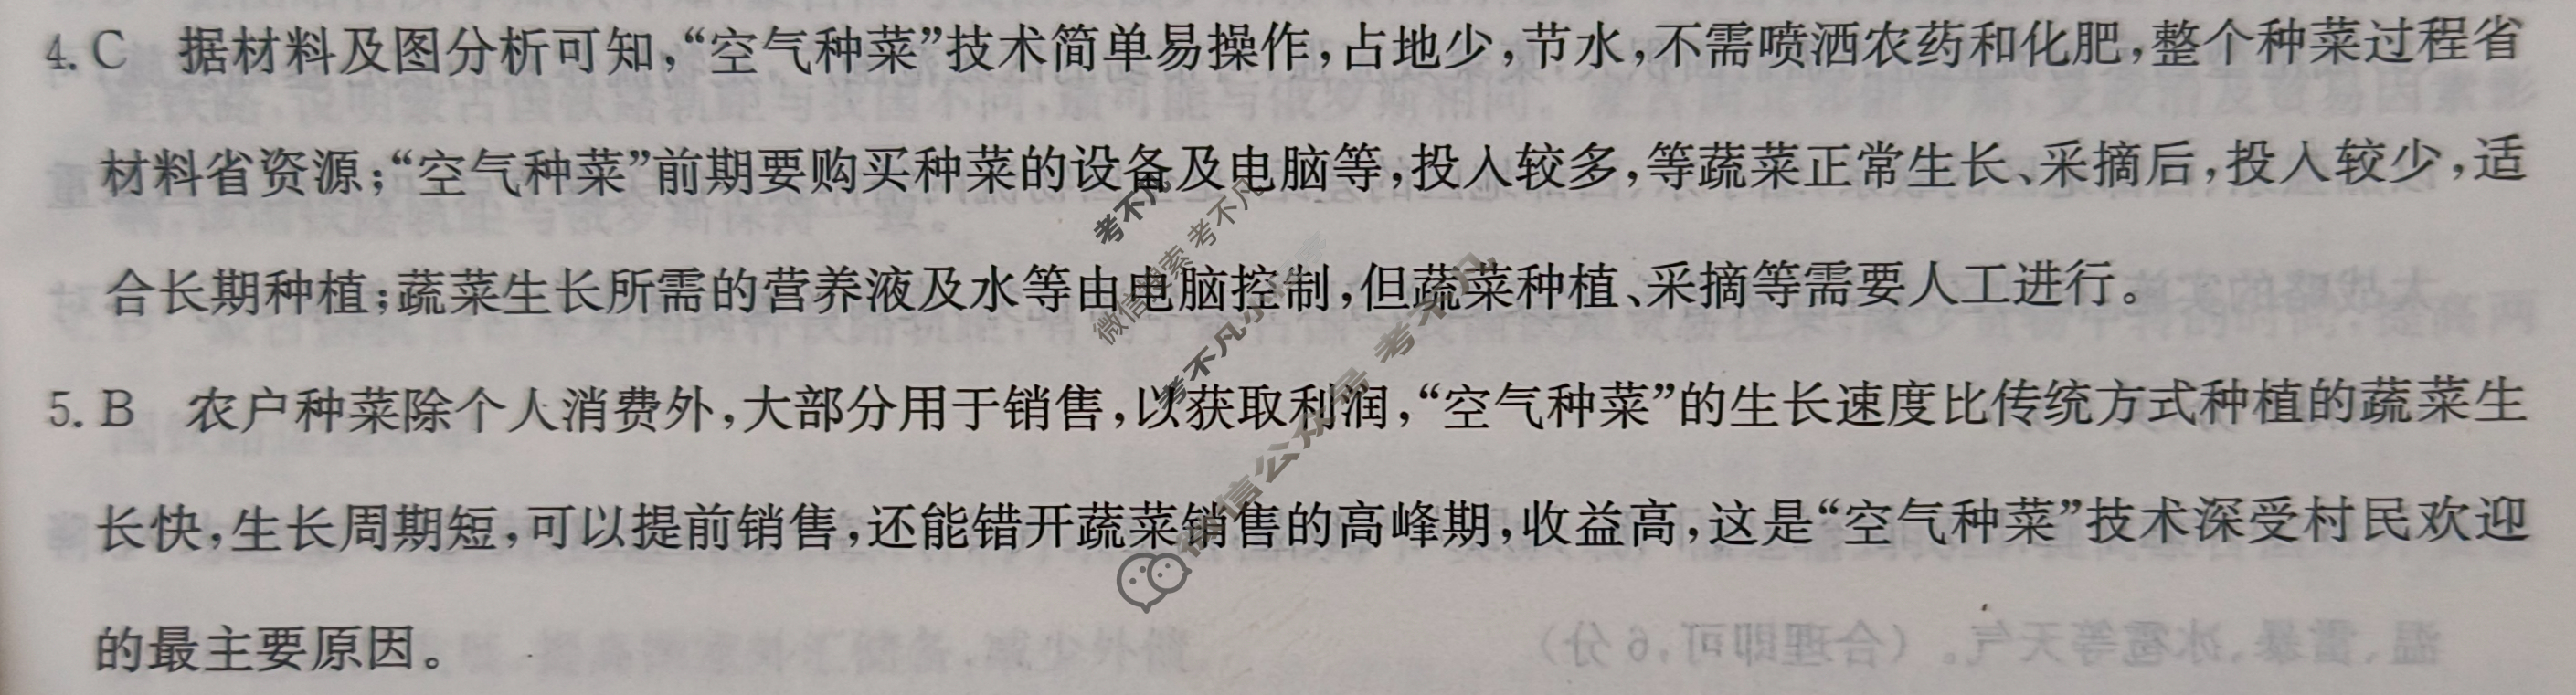 4. C 据材料及图分析可知,“空气种菜”技术简单易操作,占地少,节水,不需喷洒农药和化肥,整个种菜过程省
材料省资源;“空气种菜”前期要购买种菜的设备及电脑等,投入较多,等蔬菜正常生长、采摘后,投入较少,适
合长期种植;蔬菜生长所需的营养液及水等由电脑控制,但蔬菜种植、采摘等需要人工进行。
5. B 农户种菜除个人消费外,大部分用于销售,以获取利润,“空气种菜”的生长速度比传统方式种植的蔬菜生
长快,生长周期短,可以提前销售,还能错开蔬菜销售的高峰期,收益高,这是“空气种菜”技术深受村民欢迎
的最主要原因。
考不凡
微信搜索 考不凡
考不凡小
微信公众号 考不凡
温、雷暴、冰雹等天气。(合理即可,6分)